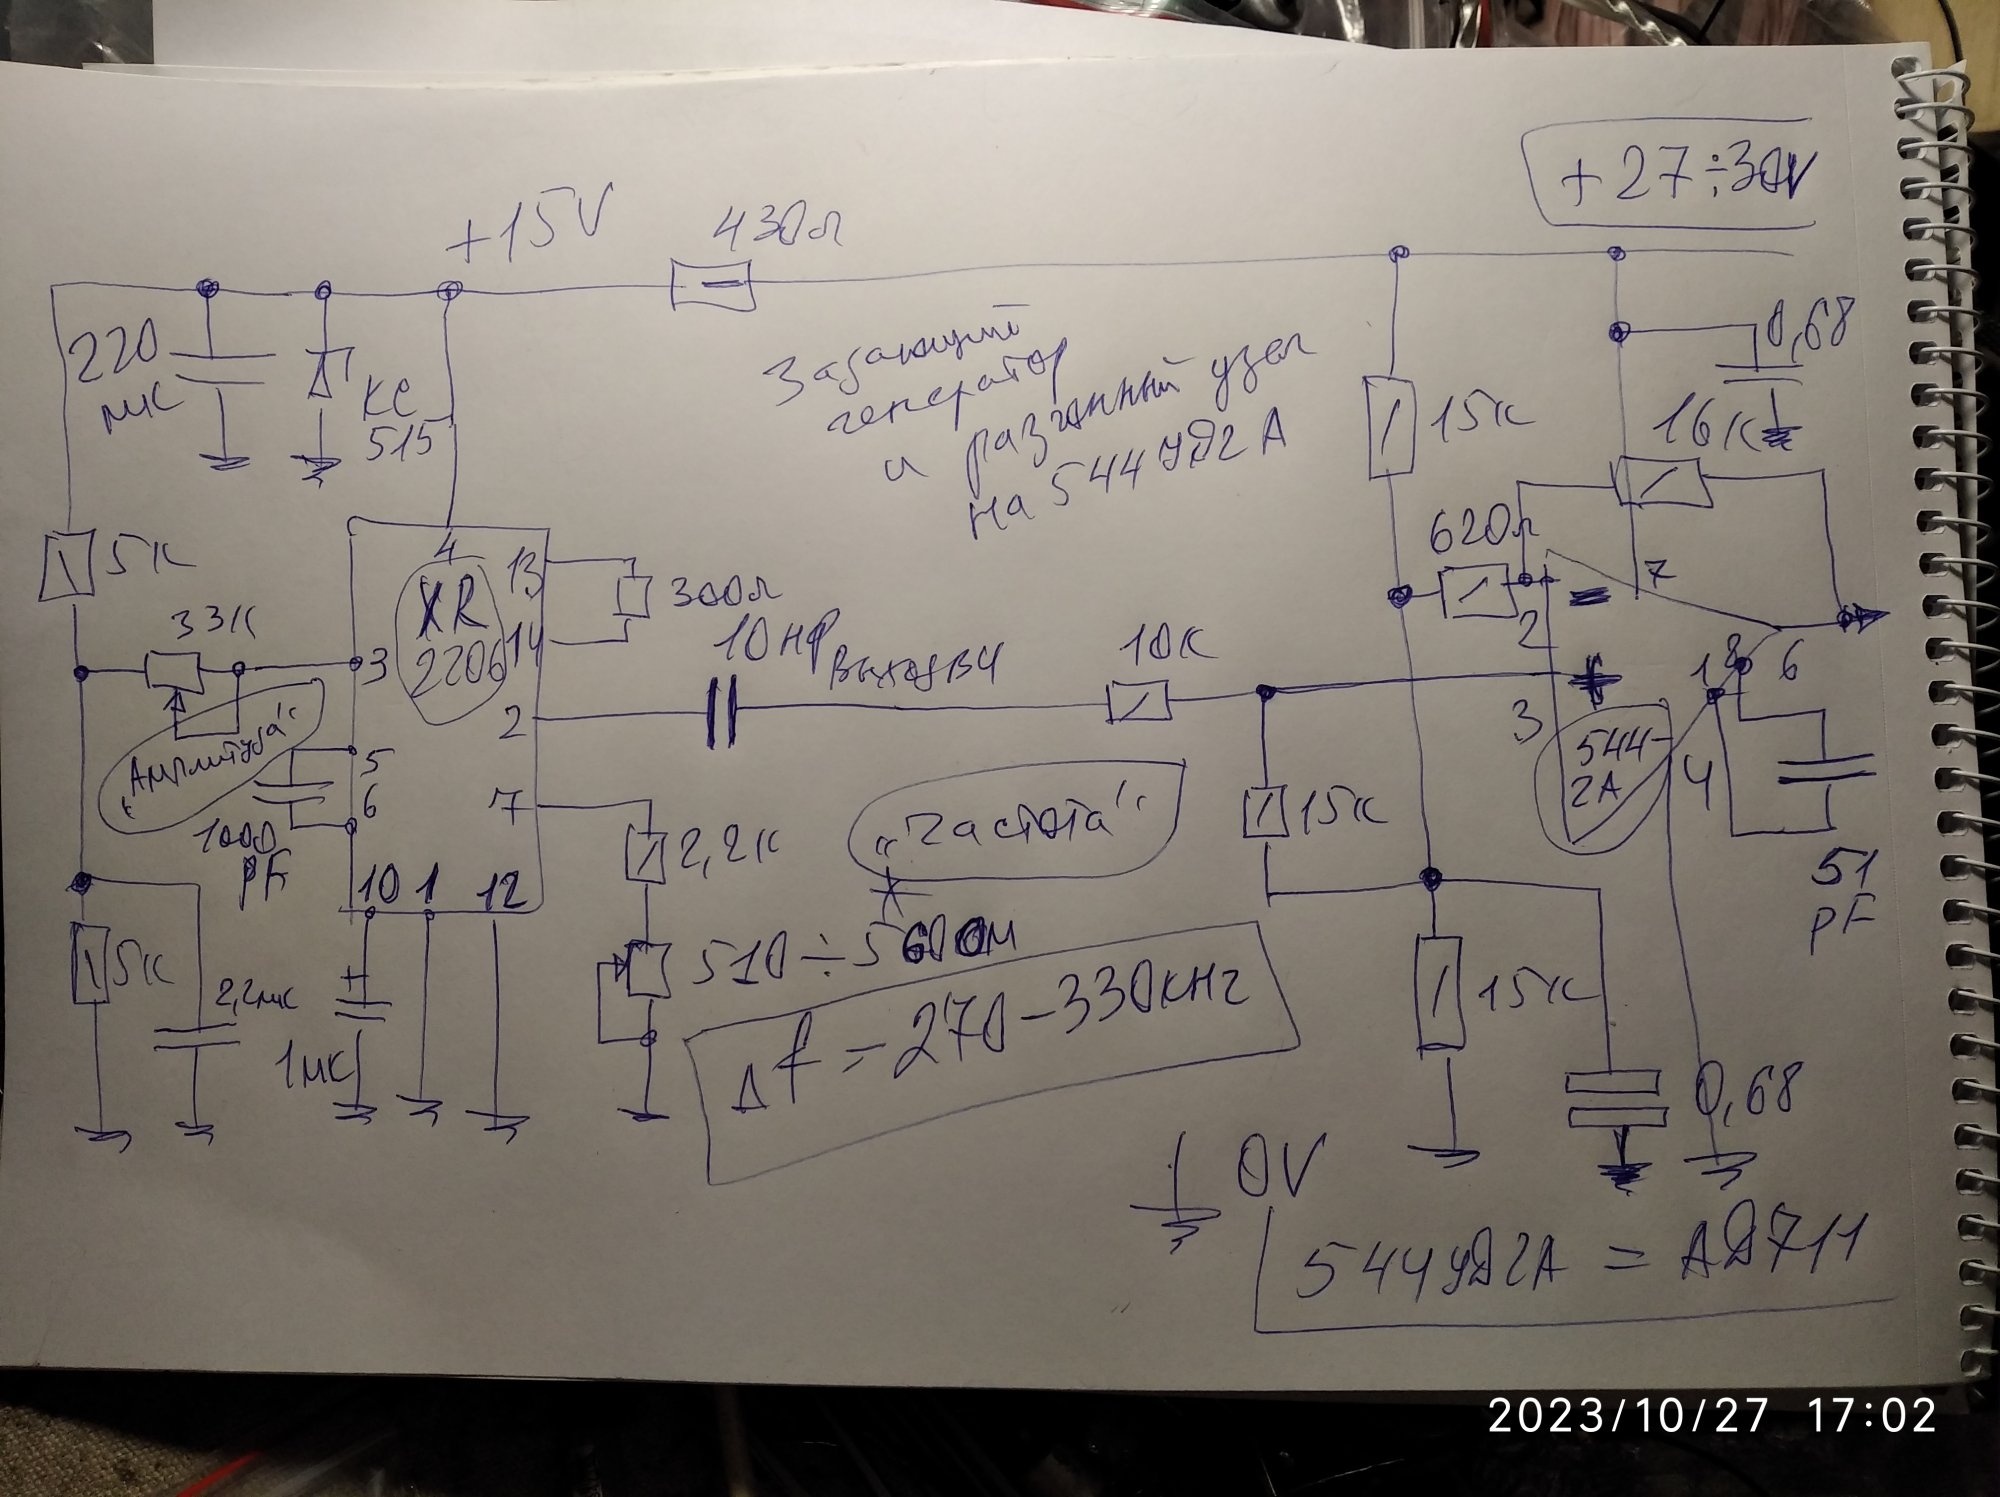 +27÷30V
+15V
430л
220
мк
КС
515
Задающий
генератор
и разгонный узел
на 544УД2А
0,68
16К
15К
620л
5К
33К
4
XR
2206
13
14
300л
3
2
7
5
6
10
1
12
10нф
Выход ВЧ
10К
2
3
7
6
1
8
4
544-
2А
51
pF
„Амплитуда"
1000
pF
2,2К
„Частота"
*
510÷560 Ом
15К
15К
5К
2,2мк
1мк
+
Δf = 270-330кHг
0,68
0V
544УД2А = АД711
2023/10/27 17:02